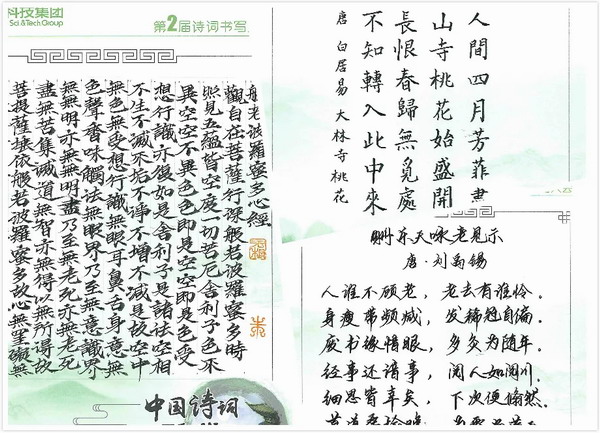 科技集团
Sci &Tech Group
第2届诗词书写.
般若波羅蜜多心經
觀自在菩薩行深般若波羅蜜多時
照見五蘊皆空度一切苦厄舍利子色不
異空空不異色色即是空空即是色受
想行識亦復如是舍利子是諸法空相
不生不滅不垢不淨不增不減是故空中
無色無受想行識無眼耳鼻舌身意無
色聲香味觸法無眼界乃至無意識界
無無明亦無無明盡乃至無老死亦無老死
盡無苦集滅道無智亦無得以無所得故
菩提薩埵依般若波羅蜜多故心無罣礙無
中国诗词
人間四月芳菲盡
山寺桃花始盛開
長恨春歸無覓處
不知轉入此中來
唐 白居易 大林寺桃花
酬乐天咏老见示
唐·刘禹锡
人谁不顾老，老去有谁怜。
身瘦带频减，发稀冠自偏。
废书缘惜眼，多灸为随年。
经事还谙事，阅人如阅川。
细思皆幸矣，下次便翛然。